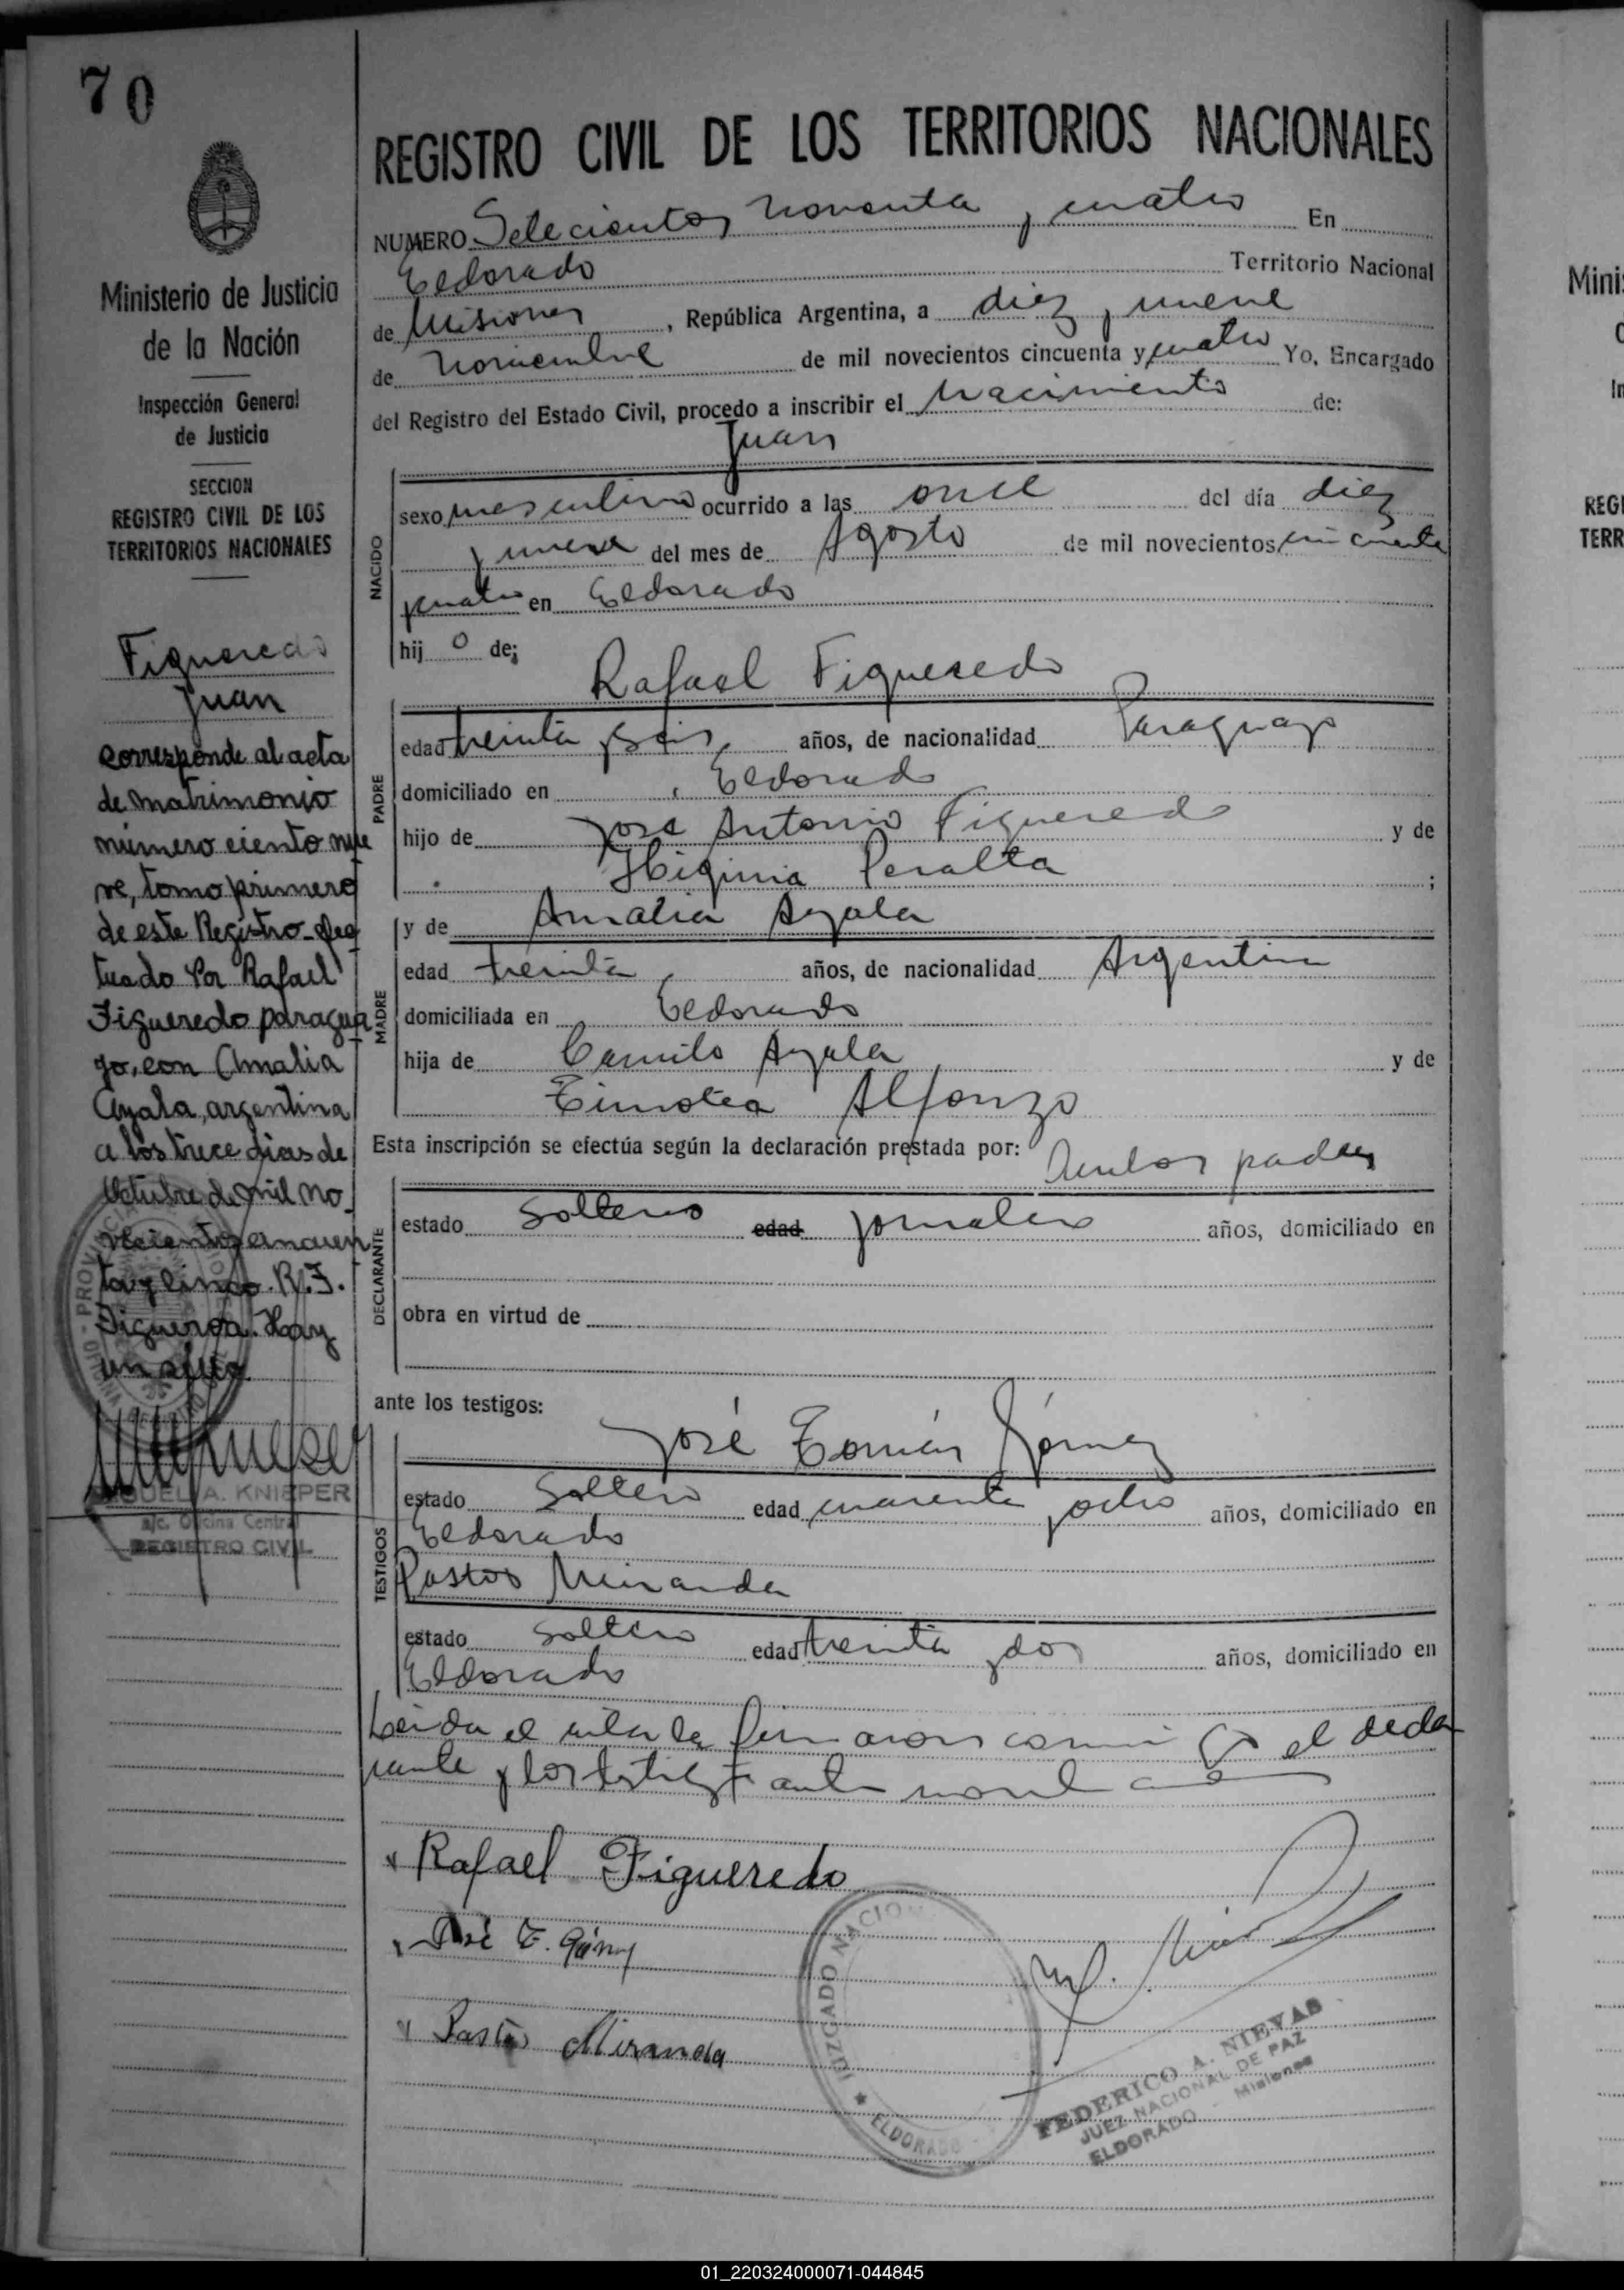 70
Ministerio de Justicia
de la Nación
Inspección General
de Justicia
SECCION
REGISTRO CIVIL DE LOS
TERRITORIOS NACIONALES
Figueredo
Juan
corresponde al acta
de matrimonio
número ciento nue
ve, tomo primero
de este Registro - efec
tuado Por Rafael
Figueredo paragua
yo, con Amalia
Ayala, argentina
a los trece dias de
Octubre de mil no_
vecientos cincuen
ta y cinco. R. F.
Figueroa. Hay
un sello
MIGUEL A. KNIEPER
a/c. Oficina Central
REGISTRO CIVIL
REGISTRO CIVIL DE LOS TERRITORIOS NACIONALES
NUMERO Setecientos noventa y cuatro En
Eldorado Territorio Nacional
de Misiones, República Argentina, a diez y nueve
de noviembre de mil novecientos cincuenta y cuatro Yo, Encargado
del Registro del Estado Civil, procedo a inscribir el nacimiento de:
Juan
NACIDO
sexo masculino ocurrido a las once del día diez
y nueve del mes de Agosto de mil novecientos cincuenta
y cuatro en Eldorado
hij o de;
Rafael Figueredo
PADRE
edad treinta y seis años, de nacionalidad Paraguayo
domiciliado en Eldorado
hijo de José Antonio Figueredo y de
Higinia Peralta ;
y de Amalia Ayala
MADRE
edad treinta años, de nacionalidad Argentina
domiciliada en Eldorado
hija de Camilo Ayala y de
Timotea Alfonzo
Esta inscripción se efectúa según la declaración prestada por: Ambos padres
DECLARANTE
estado soltero edad jornalero años, domiciliado en
obra en virtud de
ante los testigos:
José Tomás Gómez
TESTIGOS
estado soltero edad cuarenta y ocho años, domiciliado en
Eldorado
Pastor Miranda
estado soltero edad treinta y dos años, domiciliado en
Eldorado
Leida el acta la firmaron conmigo el decla
rante y los testigos
Rafael Figueredo
José T. Gómez
Pastor Miranda
JUZGADO NACION
ELDORADO
FEDERICO A. NIEVAS
JUEZ NACIONAL DE PAZ
ELDORADO - Misiones
01_220324000071-044845